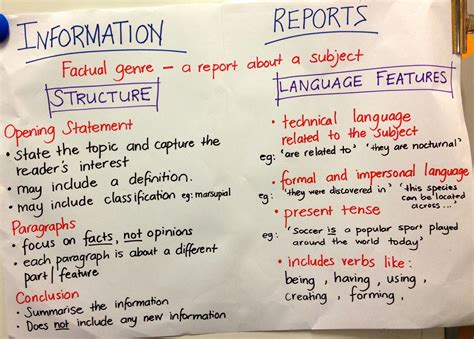 INFORMATION REPORTS
Factual genre – a report about a subject
STRUCTURE
Opening Statement
• state the topic and capture the
reader's interest
• may include a definition.
• may include classification eg: marsupial
Paragraphs
• focus on facts, not opinions
• each paragraph is about a different
part/feature
Conclusion
• Summarise the information
• Does not include any new information
LANGUAGE FEATURES
• technical language
related to the subject
eg: 'are related to' 'they are nocturnal'
• formal and impersonal language
eg: 'they were discovered in' 'this species
can be located
across...'
• present tense
eg: 'Soccer is a popular sport played
around the world today'
• includes verbs like:
being, having, using,
creating, forming,